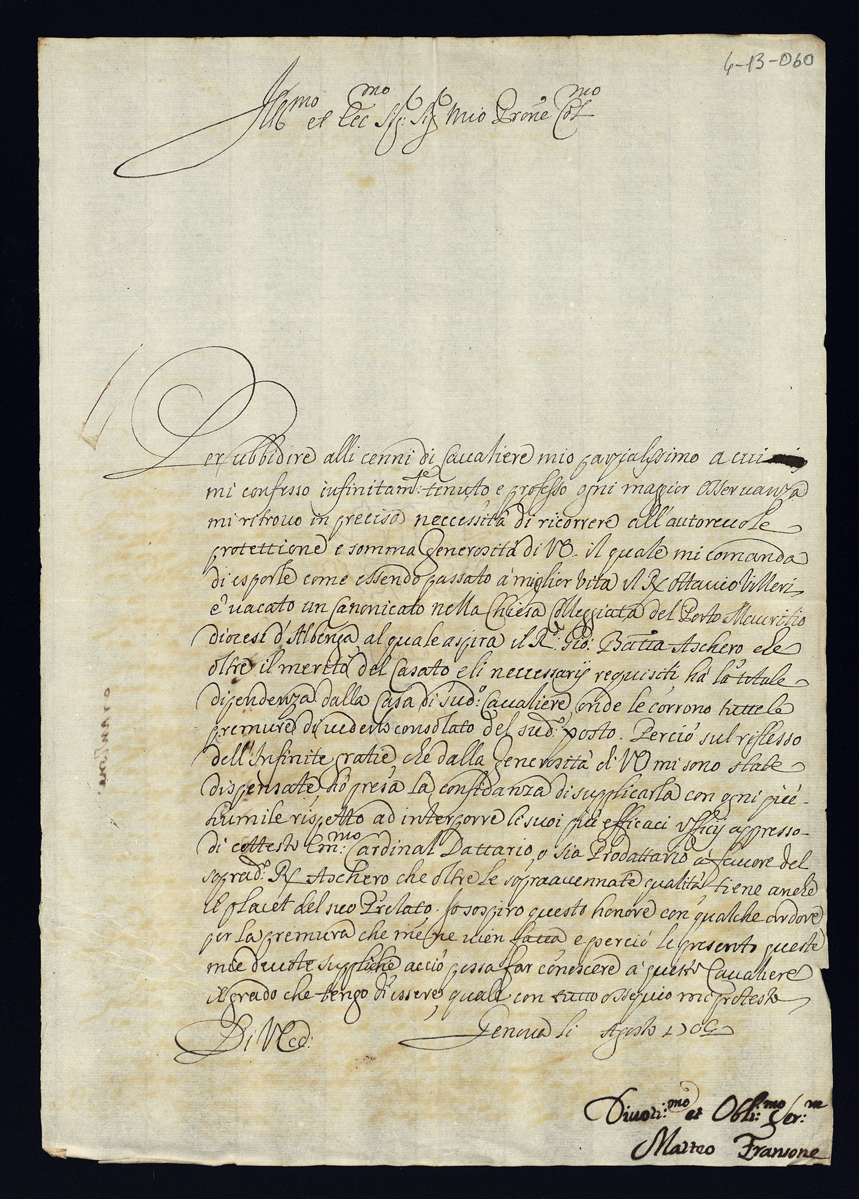 4-13-060
Ill.mo et Ecc.mo Sig.r Sig.r Mio Prone Col.mo
Per ubbidire alli cenni di Cavaliere mio parzialissimo a cui
mi confesso infinitam.te tenuto e professo ogni maggior osservanza
mi ritrovo in preciso neccessità di ricorrere all'autorevole
protettione e somma generosità di VE. il quale mi comanda
di esporle come essendo passato a miglior vita il R. Ottavio Villeri
è vacato un Canonicato nella Chiesa Colleggiata del Porto Maurisio
diocesi d'Albenga al quale aspira il R. Gio: Batta Aschero che
oltre il merito del Casato e li necessarij requisiti hà la totale
dipendenza dalla Casa di sud.o Cavaliere onde le corrono tutte le
premure di vederlo consolato del sud.o posto. Perciò sul riflesso
dell'Infinite gratie che dalla generosità di VE mi sono state
dispensate hò presa la confidanza di supplicarla con ogni più
humile rispetto ad interporre le suoi più efficaci ufficij appresso
di cottesto Em.mo Cardinal Dattario, o sia Prodattario a favore del
soprad.o R. Aschero che oltre le sopraacennate qualità tiene anche
il placet del suo Prelato. Io sospiro questo honore con qualche ardore
per la premura che me ne vien fatta e perciò le presento queste
mie devote suppliche acciò possa far conoscere a questo Cavaliere
il grado che tengo di essere, quale con tutto ossequio mi protesto
Di V.Ecc:
Genova li Agosto
Divoti.mo et Obli.mo Ser.re
Matteo Fransone